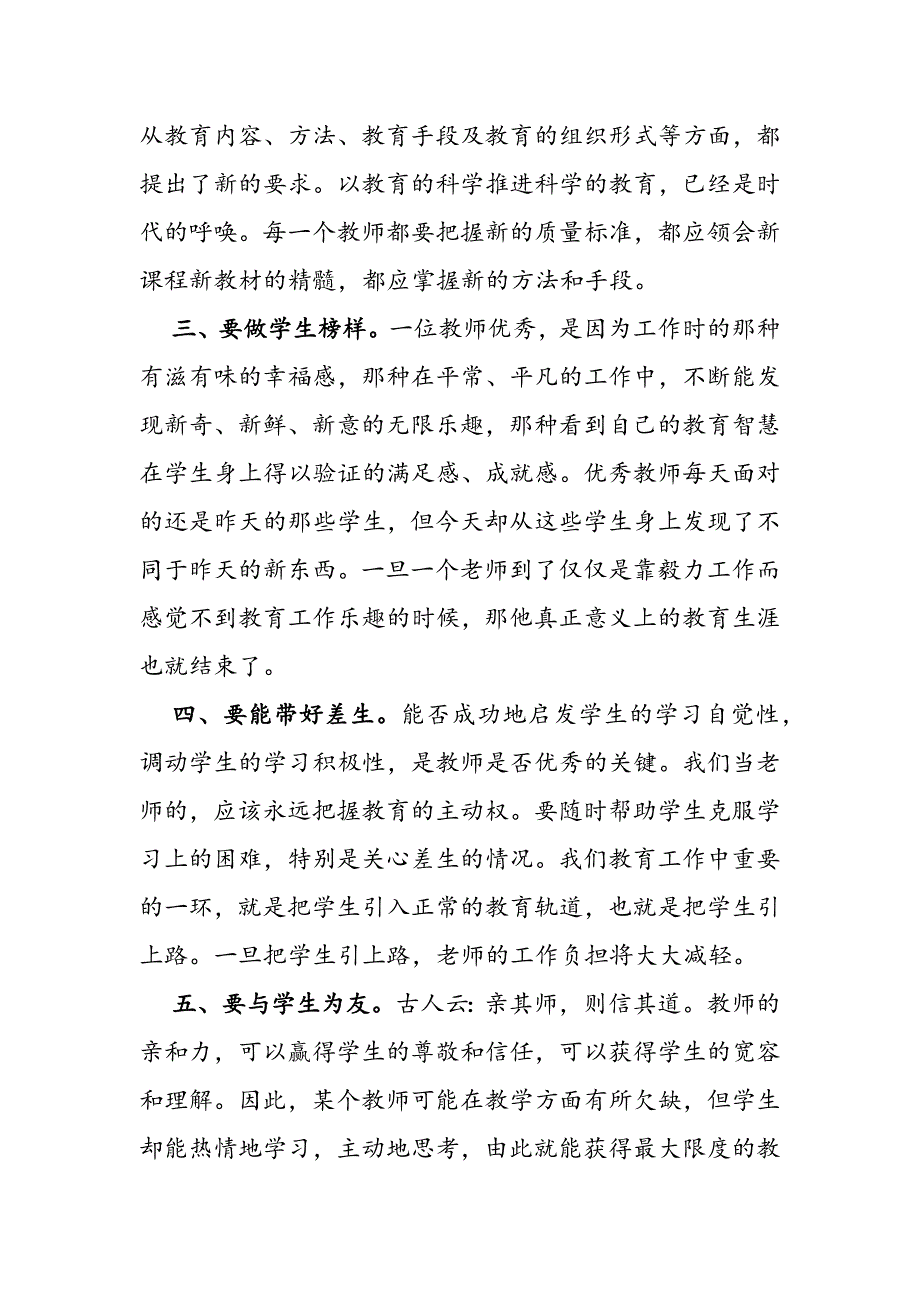 从教育内容、方法、教育手段及教育的组织形式等方面，都
提出了新的要求。以教育的科学推进科学的教育，已经是时
代的呼唤。每一个教师都要把握新的质量标准，都应领会新
课程新教材的精髓，都应掌握新的方法和手段。
三、要做学生榜样。一位教师优秀，是因为工作时的那种
有滋有味的幸福感，那种在平常、平凡的工作中，不断能发
现新奇、新鲜、新意的无限乐趣，那种看到自己的教育智慧
在学生身上得以验证的满足感、成就感。优秀教师每天面对
的还是昨天的那些学生，但今天却从这些学生身上发现了不
同于昨天的新东西。一旦一个老师到了仅仅是靠毅力工作而
感觉不到教育工作乐趣的时候，那他真正意义上的教育生涯
也就结束了。
四、要能带好差生。能否成功地启发学生的学习自觉性，
调动学生的学习积极性，是教师是否优秀的关键。我们当老
师的，应该永远把握教育的主动权。要随时帮助学生克服学
习上的困难，特别是关心差生的情况。我们教育工作中重要
的一环，就是把学生引入正常的教育轨道，也就是把学生引
上路。一旦把学生引上路，老师的工作负担将大大减轻。
五、要与学生为友。古人云：亲其师，则信其道。教师的
亲和力，可以赢得学生的尊敬和信任，可以获得学生的宽容
和理解。因此，某个教师可能在教学方面有所欠缺，但学生
却能热情地学习，主动地思考，由此就能获得最大限度的教